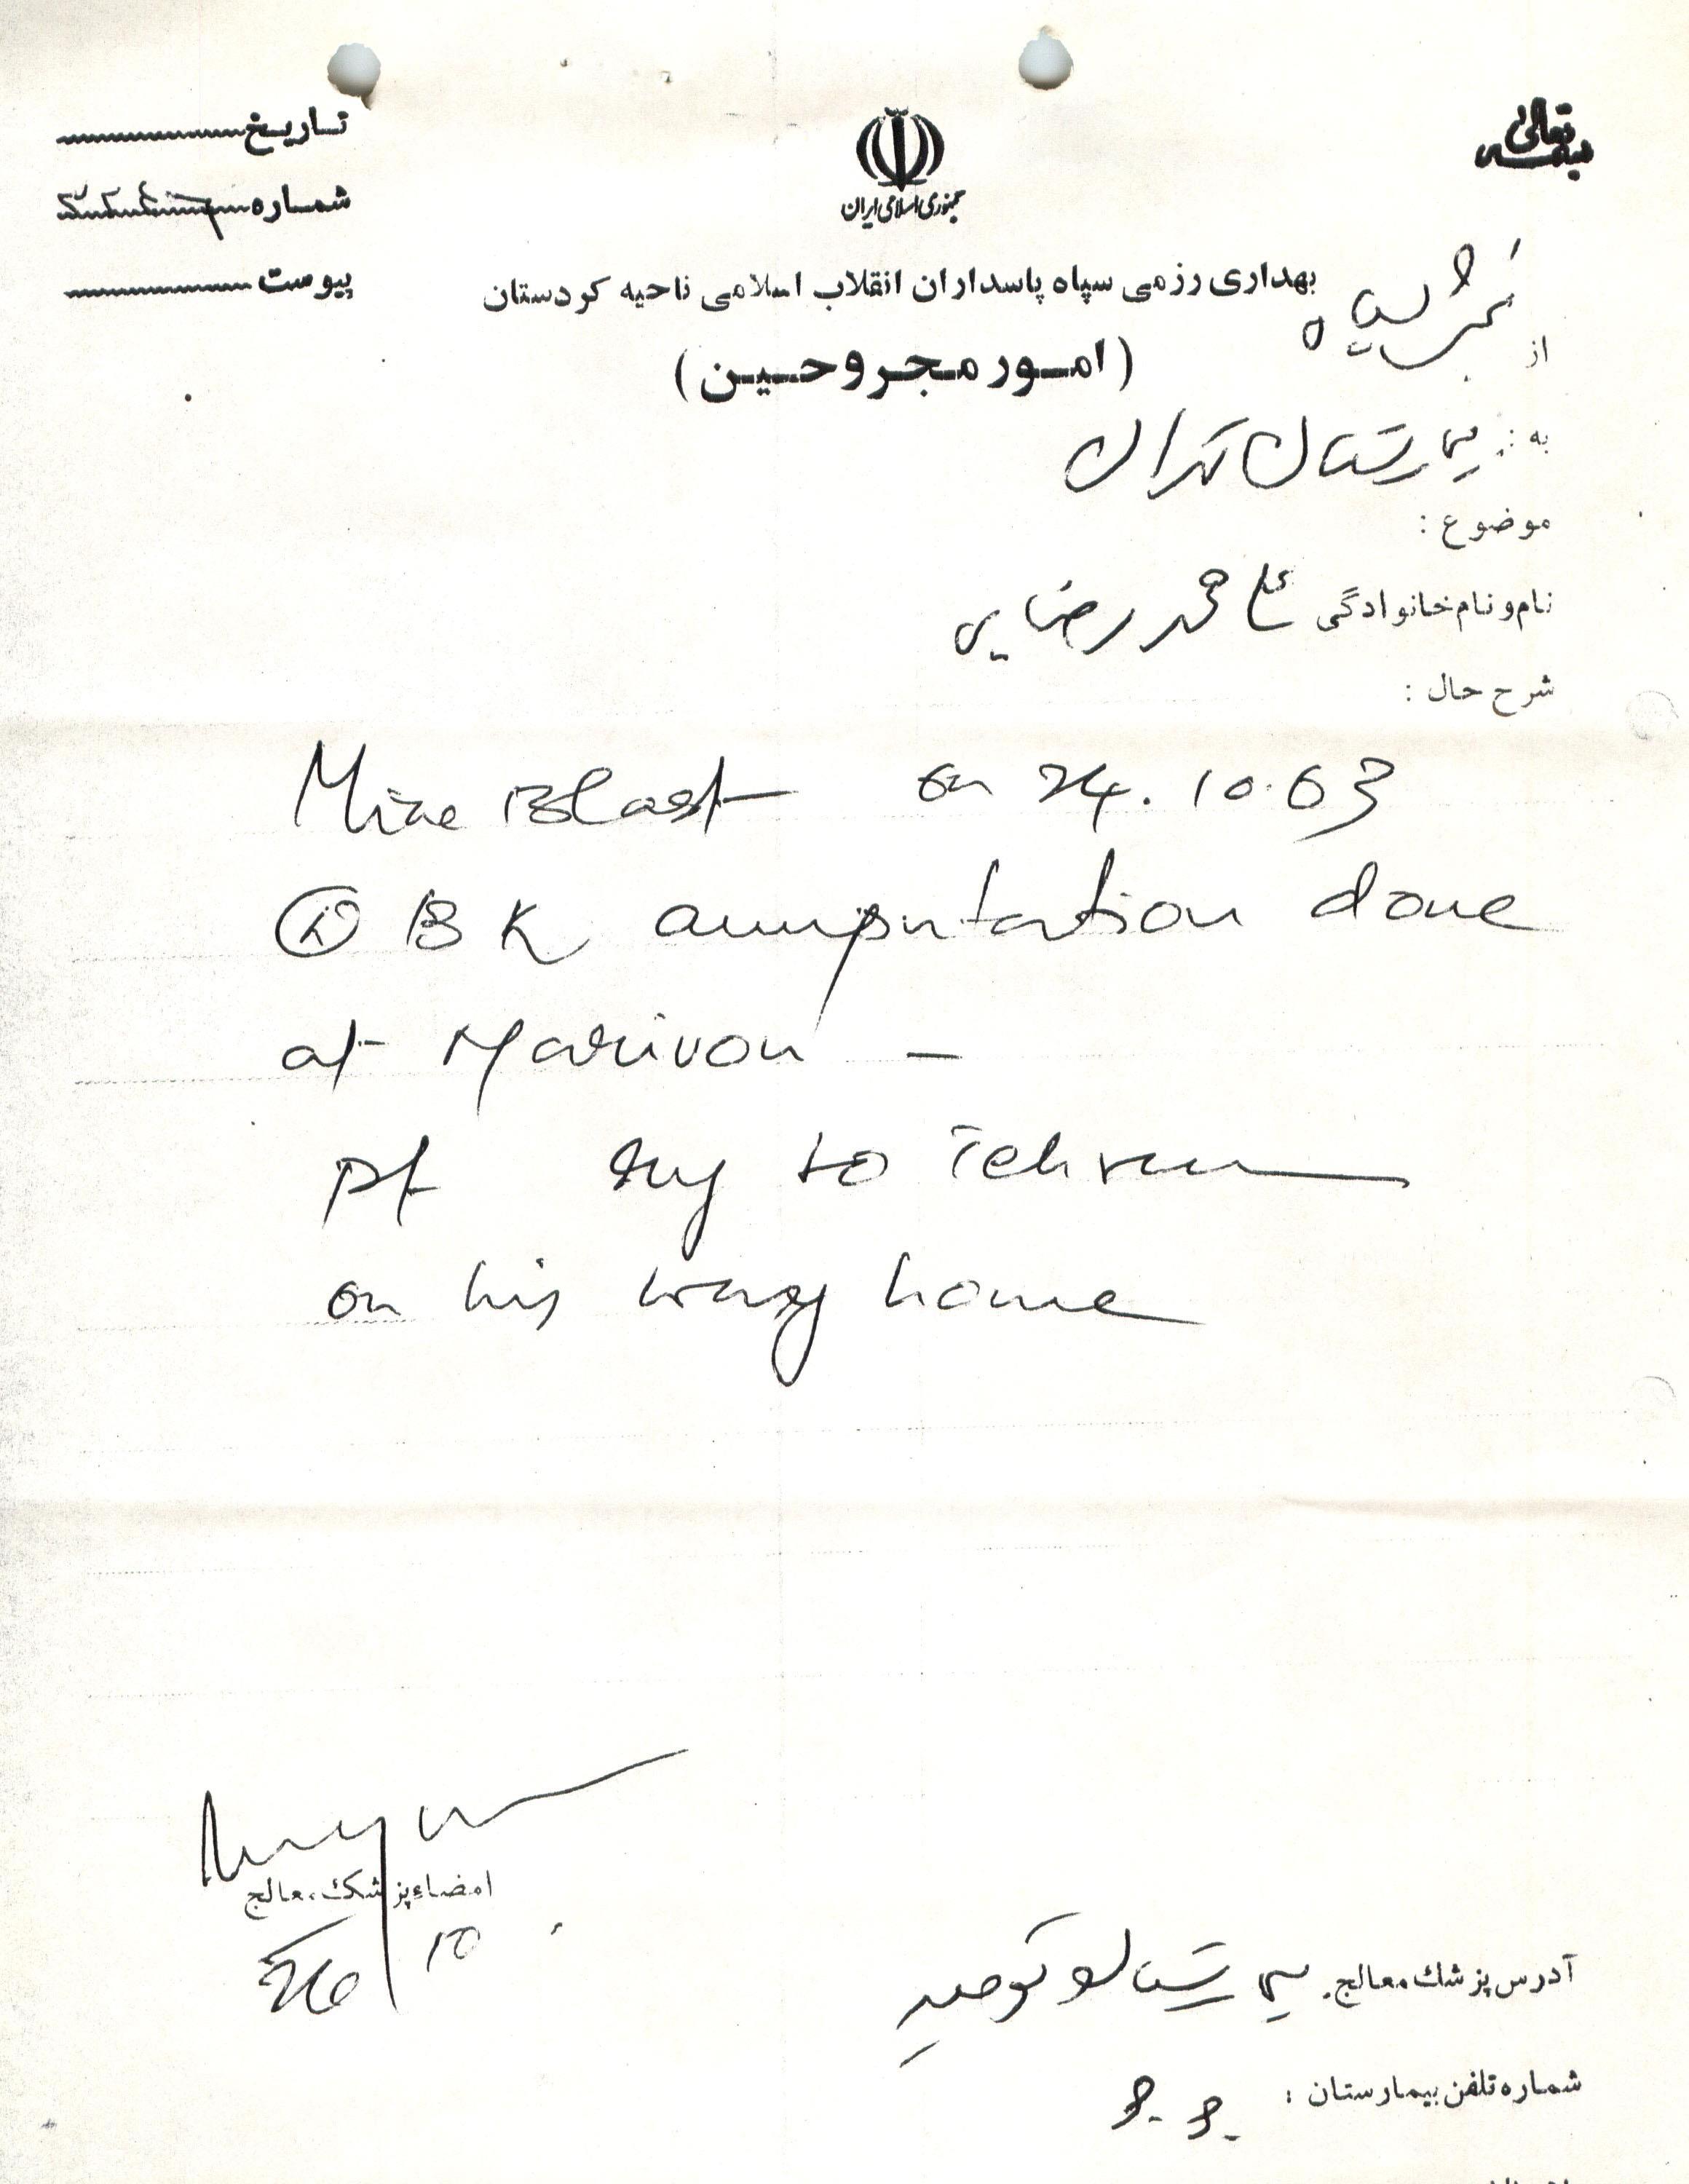 بسمه تعالی
جمهوری اسلامی ایران
تاریخ
شماره
پیوست
بهداری رزمی سپاه پاسداران انقلاب اسلامی ناحیه کردستان
(امور مجروحین)
از
به: بیمارستان تهران
موضوع:
نام و نام خانوادگی علی محمد رضایی
شرح حال:
Mine Blast on 24.10.63
BK amputation done
at Marivan -
pt to Tehran
on his way home
امضاء پزشک معالج
26/10
آدرس پزشک معالج. بیمارستان توحید
شماره تلفن بیمارستان: